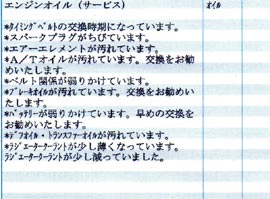 エンジンオイル（サービス） ｵｲﾙ
*ﾀｲﾐﾝｸﾞﾍﾞﾙﾄの交換時期になっています。
*スパークプラグがちびています。
*エアーエレメントが汚れています。
*Ａ／Ｔオイルが汚れています。交換をお勧
めいたします。
*ベルト関係が弱りかけています。
*ﾌﾞﾚｰｷｵｲﾙが汚れています。交換をお勧めい
たします。
*ﾊﾞｯﾃﾘｰが弱りかけています。早めの交換を
お勧めいたします。
*ﾃﾞﾌｵｲﾙ・ﾄﾗﾝｽﾌｧｰｵｲﾙが汚れています。
ﾗｼﾞｴｰﾀｰｸｰﾗﾝﾄが少し薄くなっています。
ﾗｼﾞｴｰﾀｰｸｰﾗﾝﾄが少し減っていました。